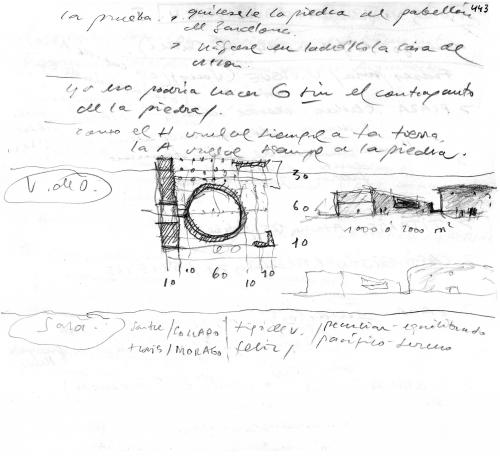 443
la prueba. > quítesele la piedra al pabellón
de Barcelona.
> hágase en ladrillo la casa de
Yo no podría hacer G sin el contrapunto
de la piedra/.
como el H vuelve siempre a la tierra,
la A vuelve siempre a la piedra.
V. de O.
30
60
10
60
10 10 60 10 10
1000 ó 2000 m²
Sara.
/COLLADO
/MORAGO
feliz/
/peculiar-equilibrado
pacífico-sereno